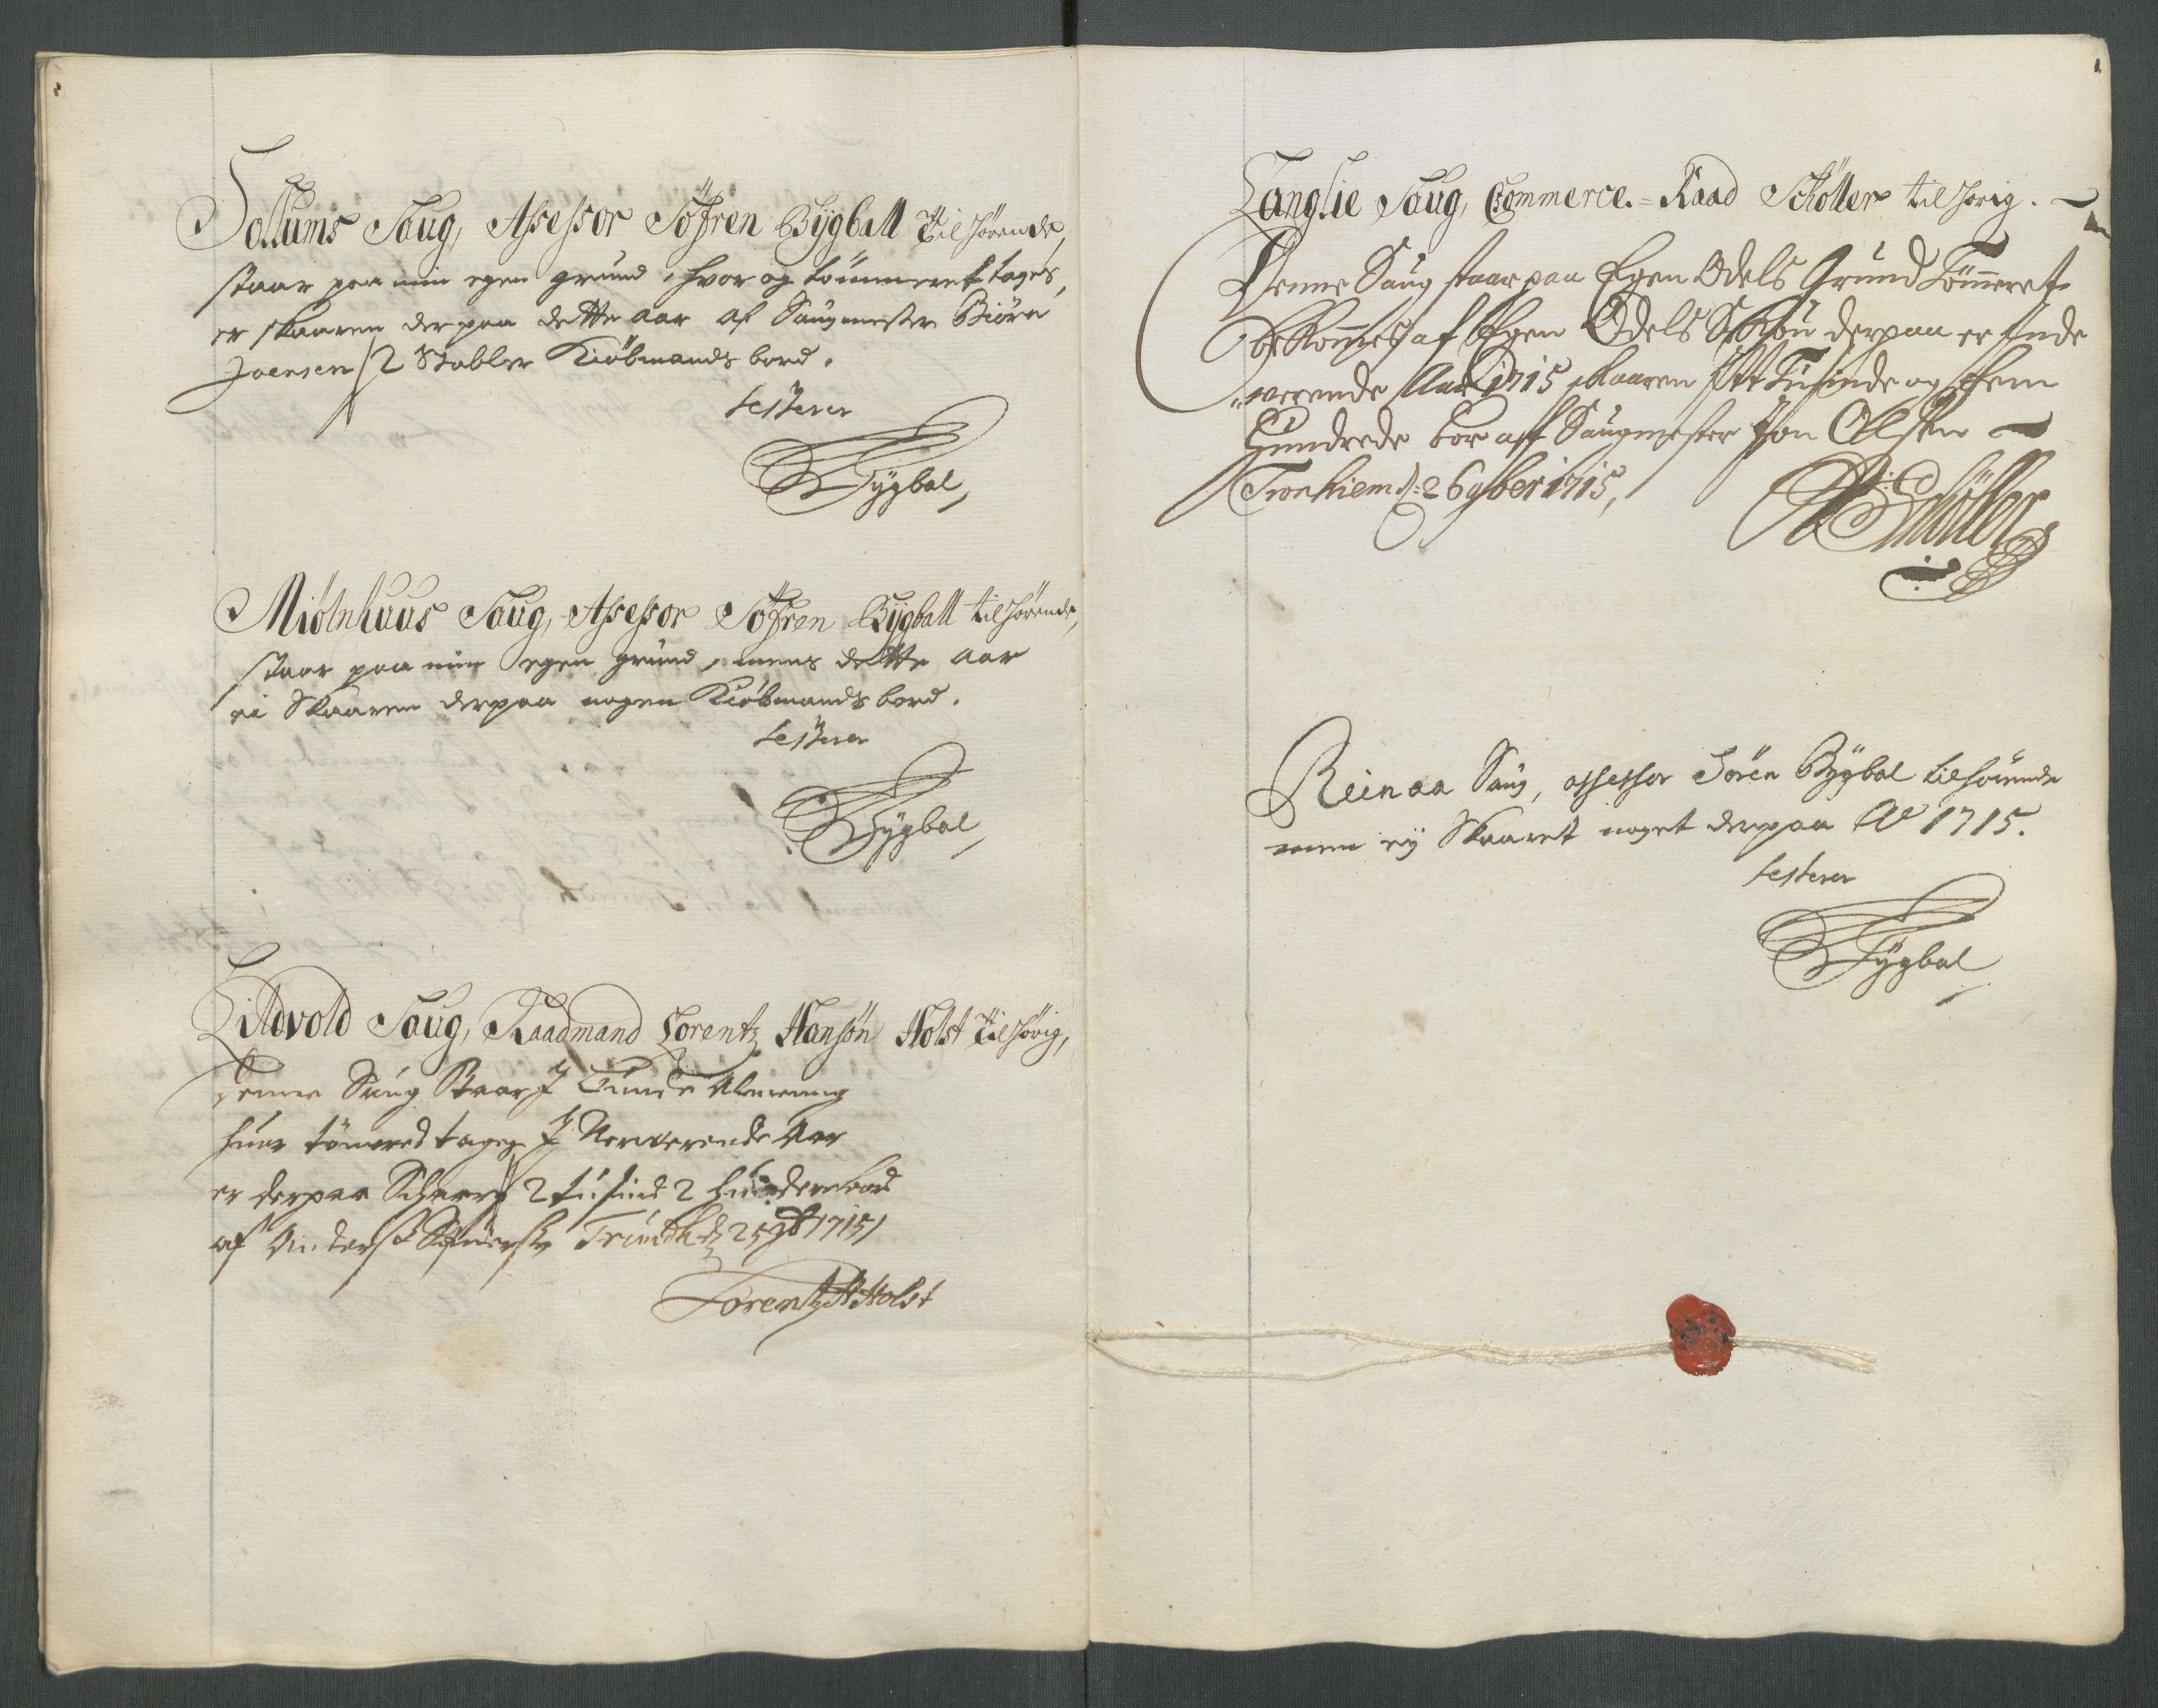 Sollums Saug, Assessor Söfren Bÿgball Tilhörende,
staar paa min egen grund, hvor og tömmeret tages,
er skaaren derpaa dette aar af Saugmester Biörn
Joensen 2 Stabler Kiöbmands bord.
testerer
SBÿgbal,
Miölnhuus Saug, Assessor Söfren Bÿgball tilhörende,
staar paa min egen grund, mens dette aar
ei Skaaren derpaa nogen Kiöbmands bord.
testerer
SBÿgbal,
Saug, Raadmand Lorentz Hansön Holst Tilhörig,
denne Saug Staar J Almening
huor tömmred tages J Nerverende Aar
er derpaa 2 tusind 2 hundere bord
af 25 1715
Lorentz H Holst
Langlie Saug, Commerce-Raad Schöller tilhörig.
Denne Saug staar paa Egen Odels Grund Tömmeret
bekommes af Egen Odels Skou derpaa er Inde
werende Aar 1715 skaaren Tusinde og Fem
Hundrede bor aff Saugmester Jon Olsen
Tronhiem d: 26 9ber 1715,
Schöller
Reinaa Saug, assessor Sören Bÿgbal tilhörende
men eÿ Skaaret noget derpaa Ao 1715.
testerer
SBÿgbal